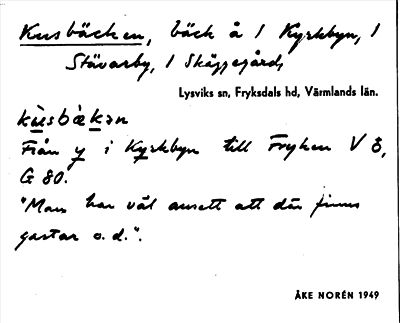 Kusbäcken, bäck å 1 Kyrkbyn, 1
Stävarby, 1 Skäggegård,
Lysviks sn, Fryksdals hd, Värmlands län.
kùsbä̀kən
Från y i Kyrkbyn till Fryken V ö,
G 80.
"Man har väl ansett att där finns
gastar o. d.".
ÅKE NORÉN 1949